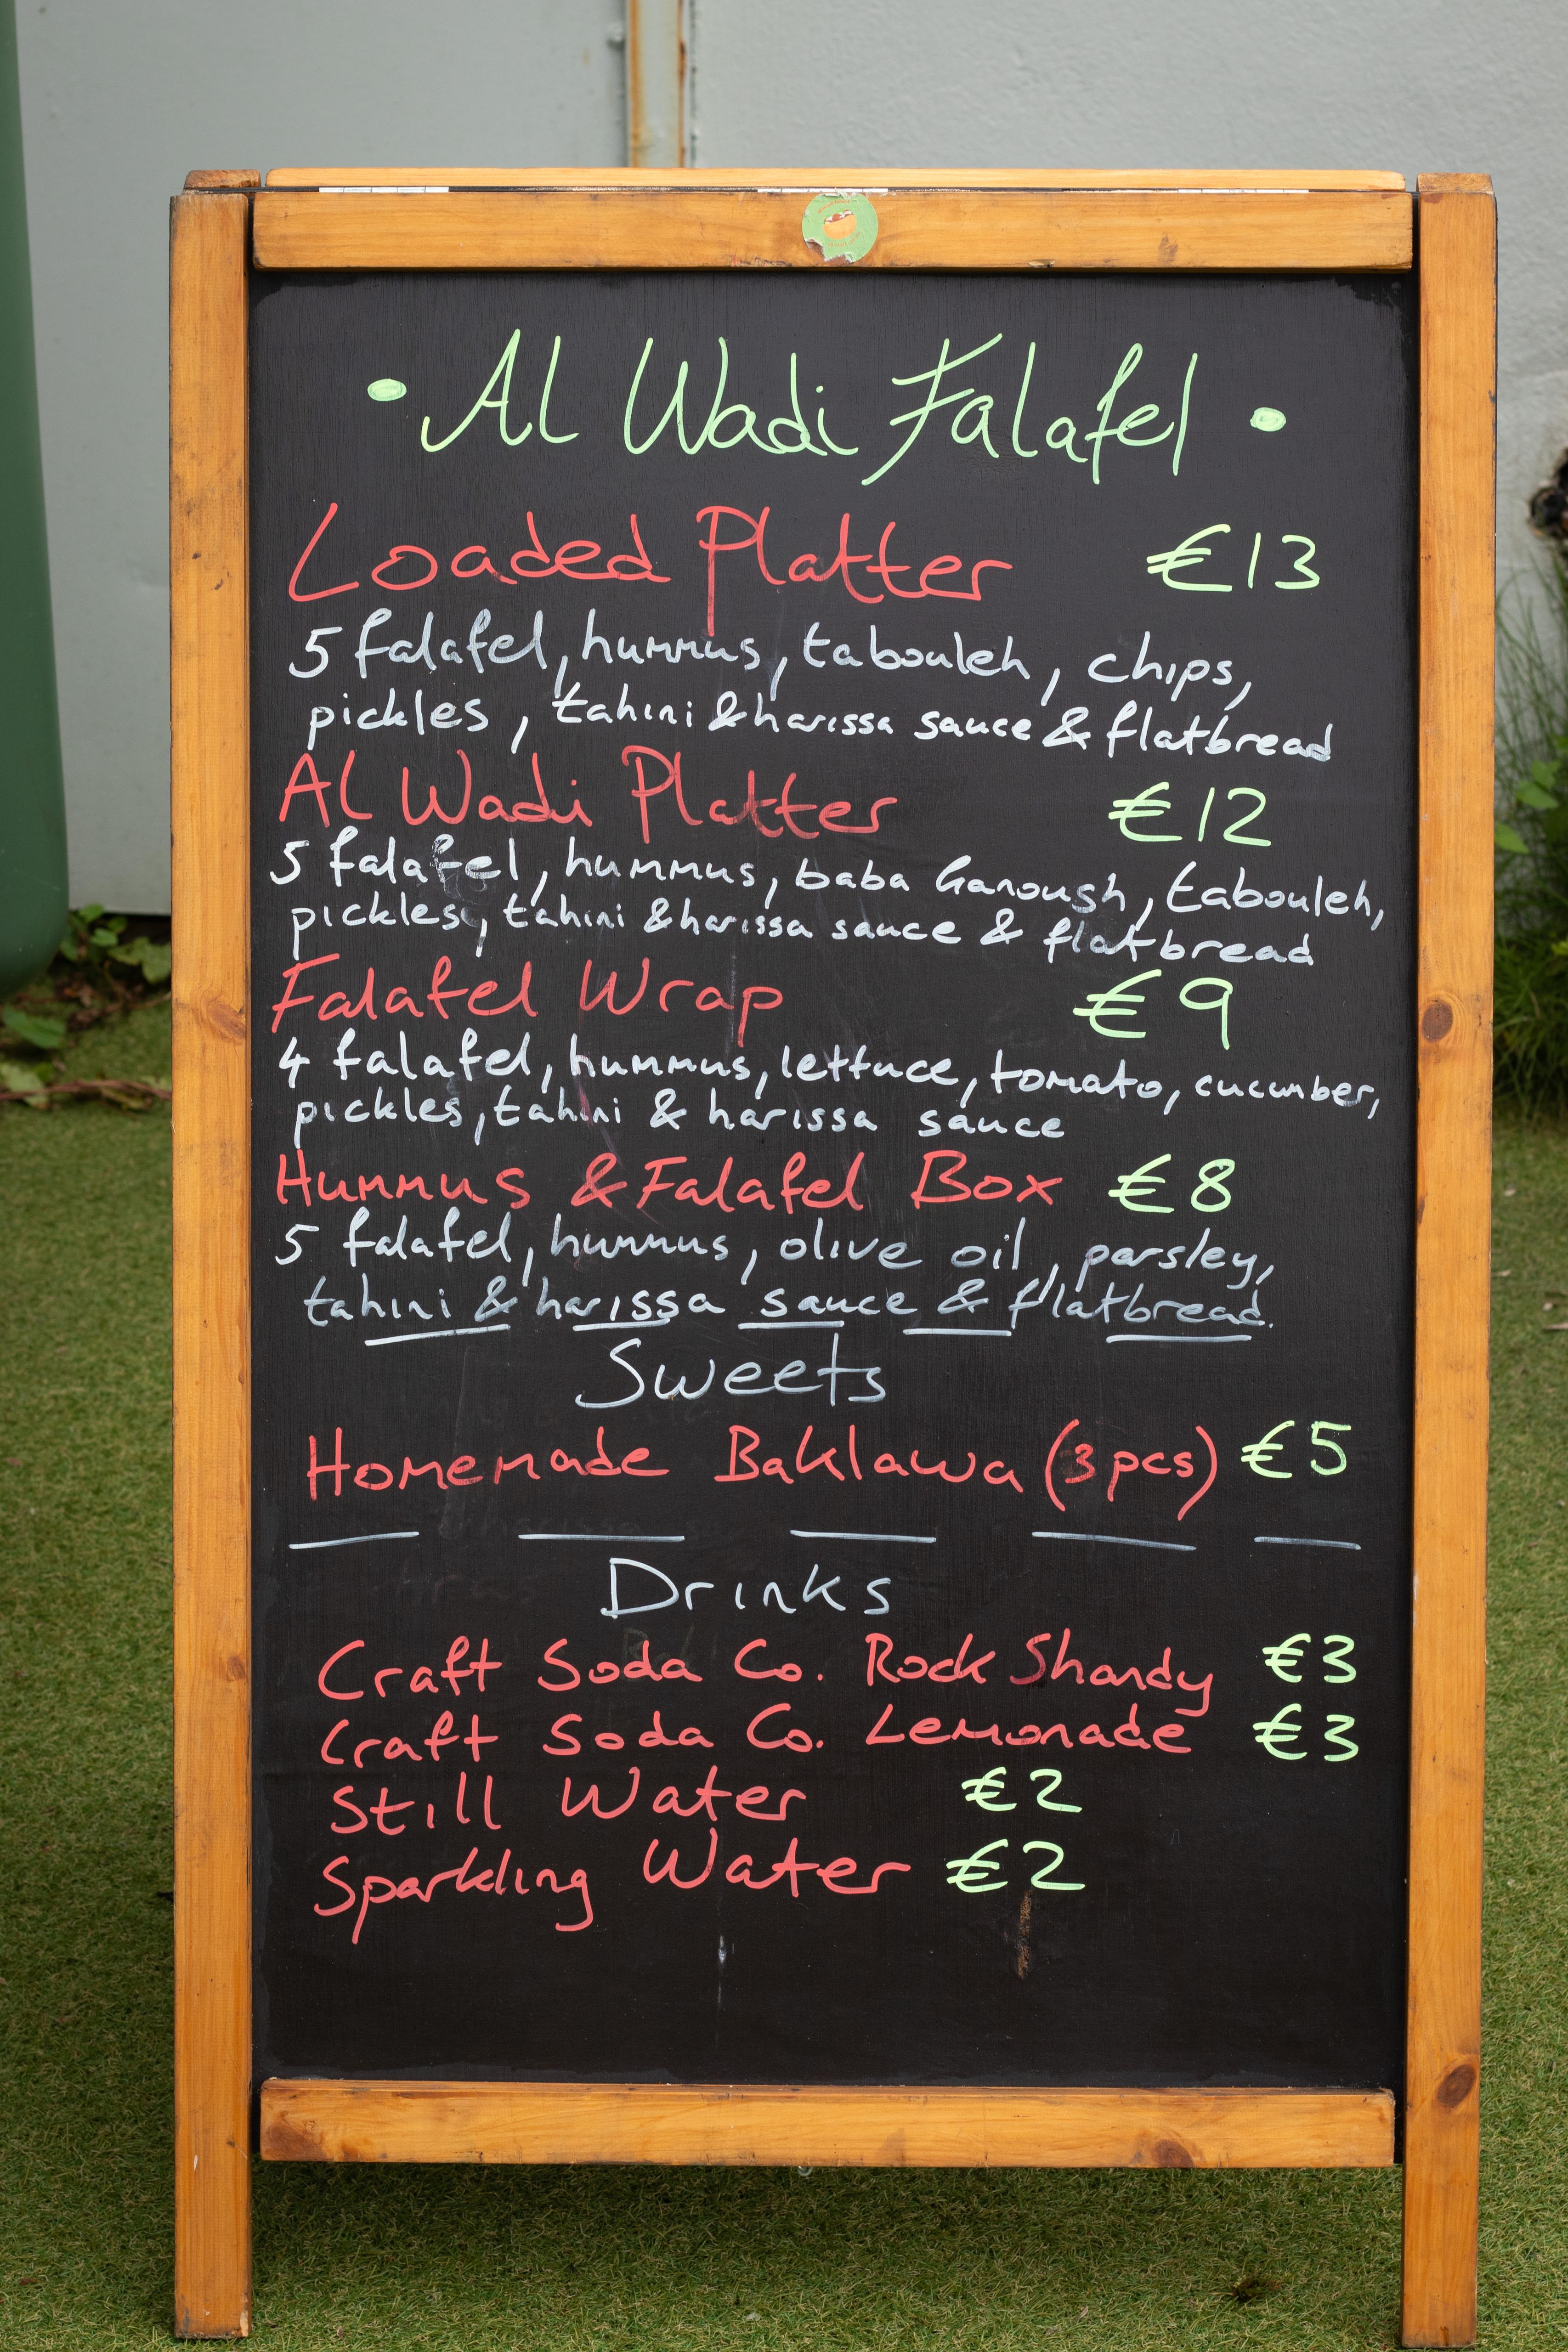 • Al Wadi Falafel •
Loaded Platter €13
5 falafel, hummus, tabouleh, chips,
pickles, tahini & harissa sauce & flatbread
Al Wadi Platter €12
5 falafel, hummus, baba Ganoush, tabouleh,
pickles, tahini & harissa sauce & flatbread
Falafel Wrap €9
4 falafel, hummus, lettuce, tomato, cucumber,
pickles, tahini & harissa sauce
Hummus & Falafel Box €8
5 falafel, hummus, olive oil, parsley,
tahini & harissa sauce & flatbread.
Sweets
Homemade Baklawa (3 pcs) €5
Drinks
Craft Soda Co. Rock Shandy €3
Craft Soda Co. Lemonade €3
Still Water €2
Sparkling Water €2